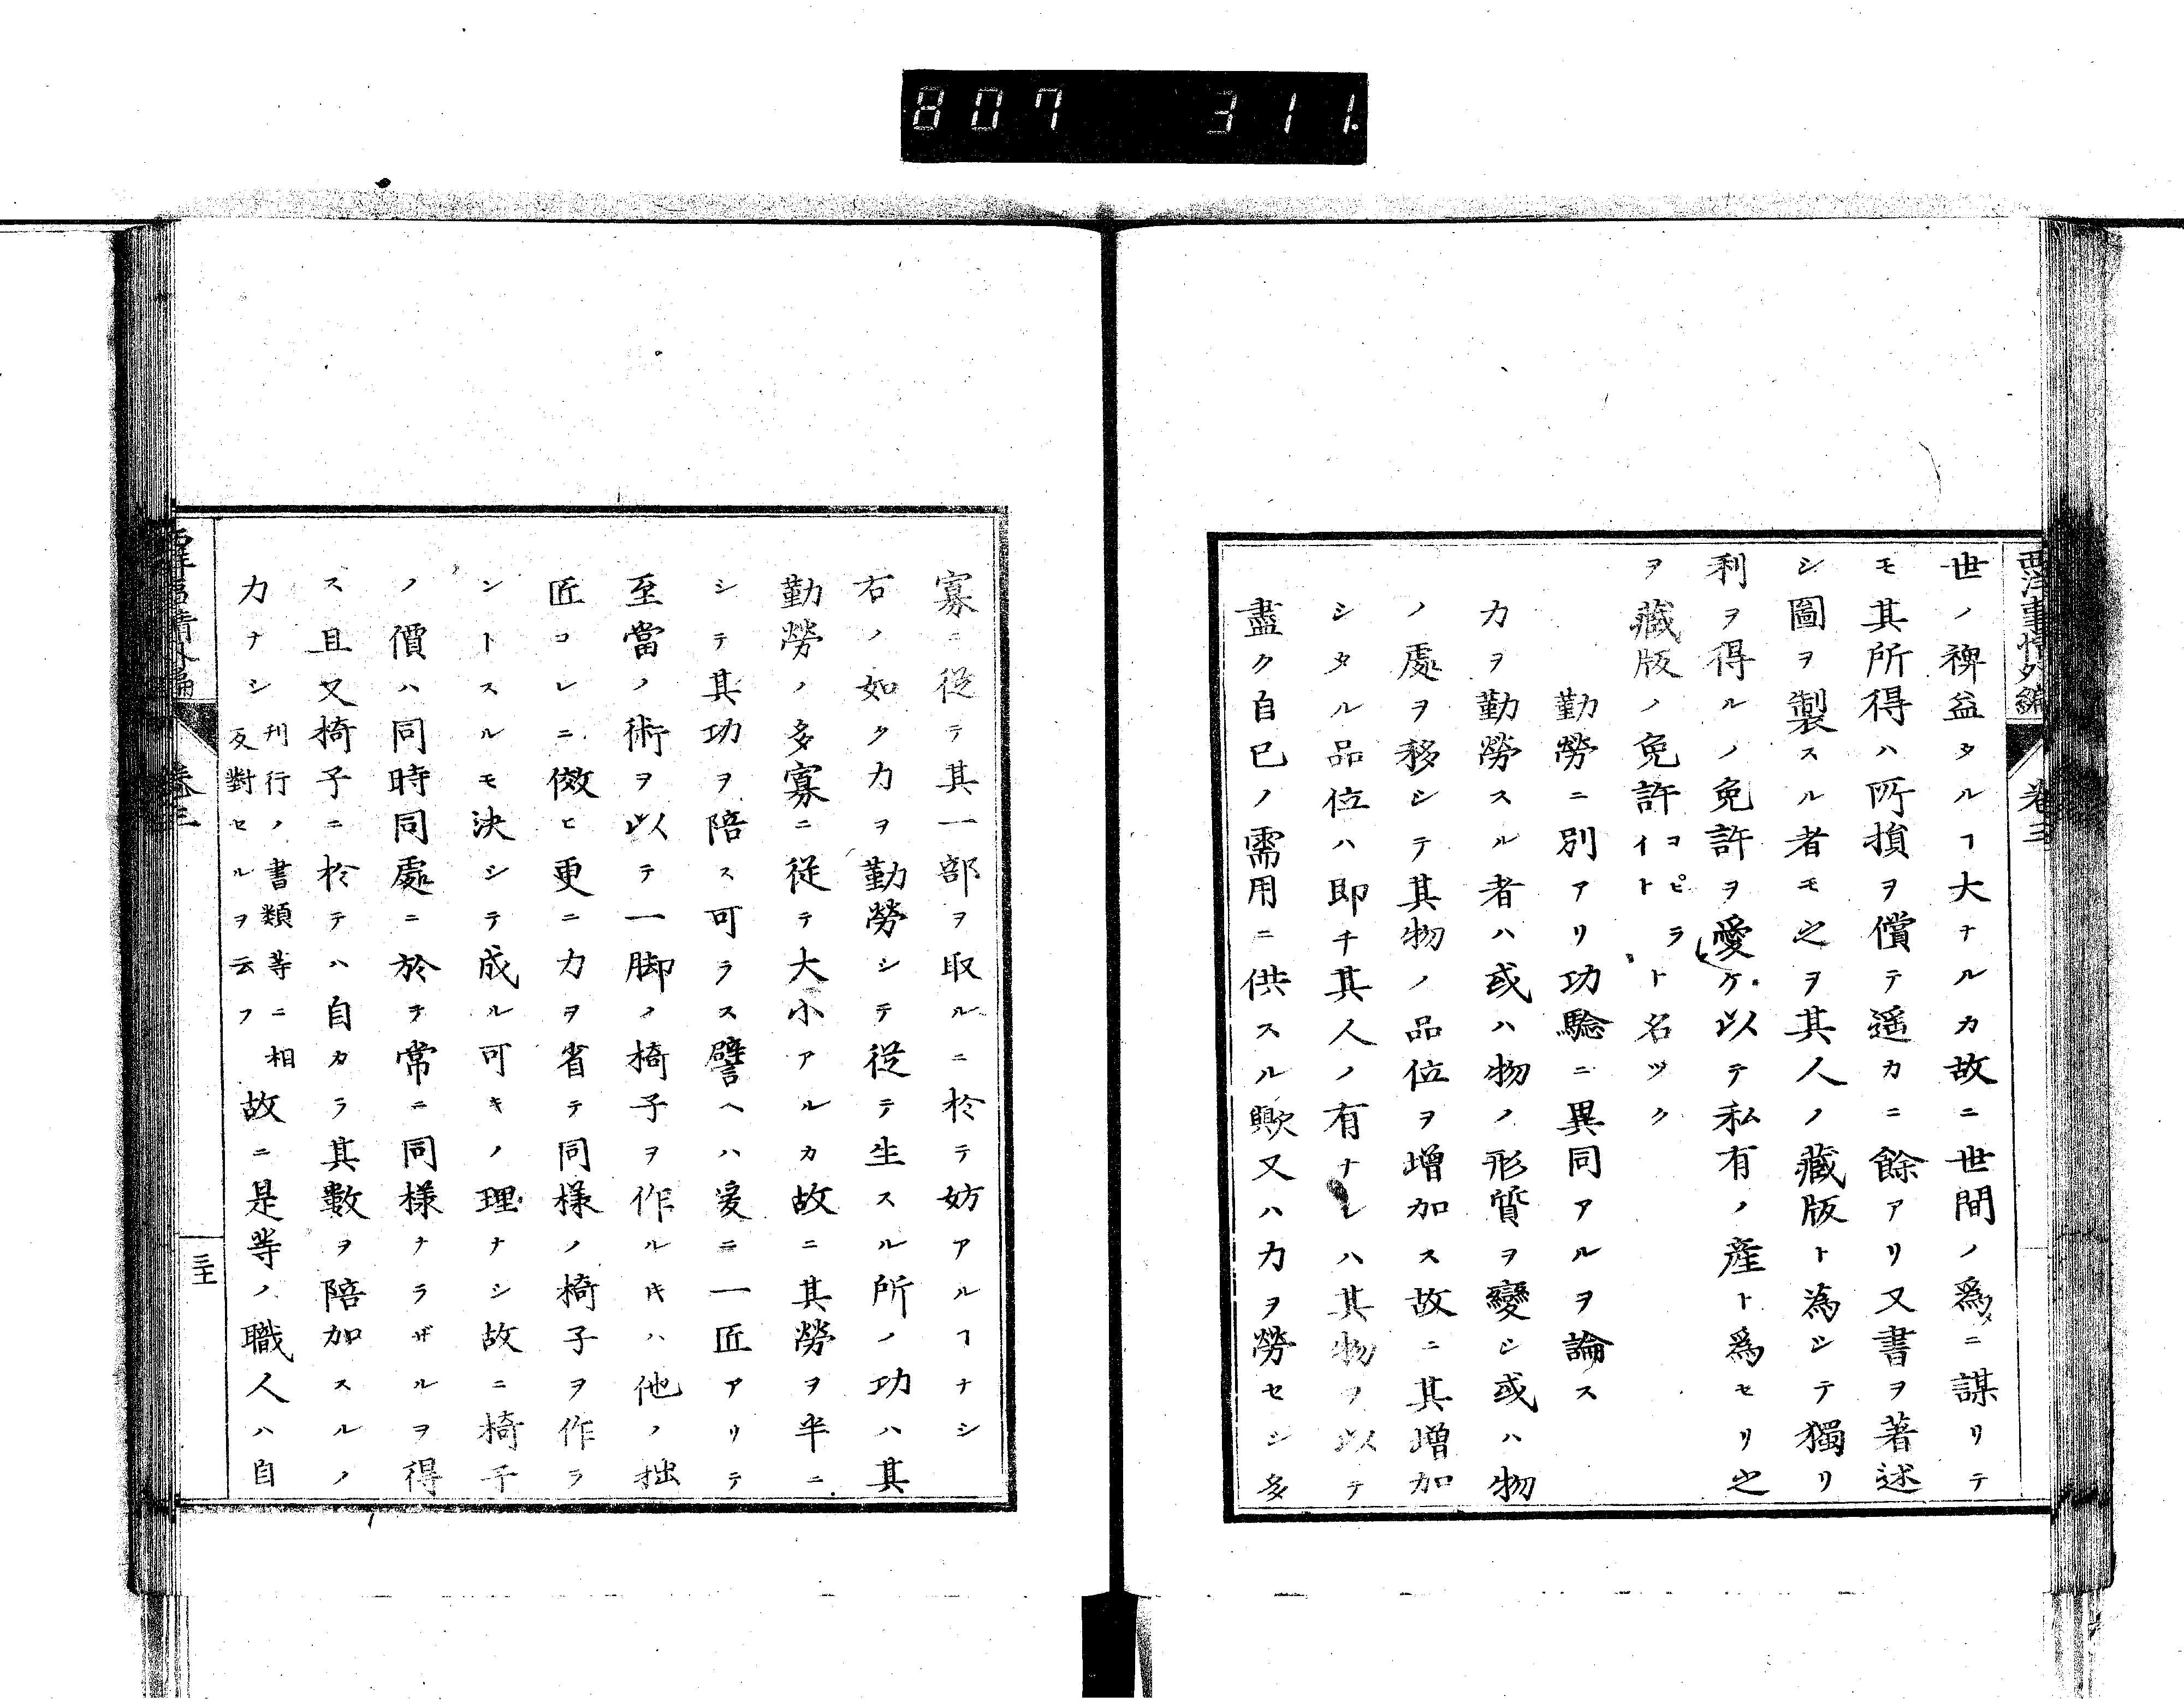 807 311.
西洋事情外編 卷三
世ノ裨益タルヿ大ナルカ故ニ世間ノ爲メニ謀リテ
モ其所得ハ所損ヲ償テ遥カニ餘アリ又書ヲ著述
シ圖ヲ製スル者モ之ヲ其人ノ藏版ト為シテ獨リ
利ヲ得ルノ免許ヲ受ケ以テ私有ノ産ト爲セリ之
ヲ藏版ノ免許コピライト ト名ツク
勤勞ニ別アリ功驗ニ異同アルヲ論ス
力ヲ勤勞スル者ハ或ハ物ノ形質ヲ變シ或ハ物
ノ處ヲ移シテ其物ノ品位ヲ增加ス故ニ其增加
シタル品位ハ即チ其人ノ有ナレハ其物ヲ以テ
盡ク自已ノ需用ニ供スル歟又ハ力ヲ勞セシ多
寡ニ從テ其一部ヲ取ルニ於テ妨アルヿナシ
右ノ如ク力ヲ勤勞シテ從テ生スル所ノ功ハ其
勤勞ノ多寡ニ從テ大小アルカ故ニ其勞ヲ半ニ
シテ其功ヲ陪ス可ラス譬ヘハ爰ニ一匠アリテ
至當ノ術ヲ以テ一脚ノ椅子ヲ作ルトキハ他ノ拙
匠コレニ傚ヒ更ニ力ヲ省テ同樣ノ椅子ヲ作ラ
ントスルモ決シテ成ル可キノ理ナシ故ニ椅子
ノ價ハ同時同處ニ於テ常ニ同樣ナラザルヲ得
ス且又椅子ニ於テハ自カラ其數ヲ陪加スルノ
力ナシ刋行ノ書類等ニ相反對セルヲ云フ故ニ是等ノ職人ハ自
西洋事情外編 卷三